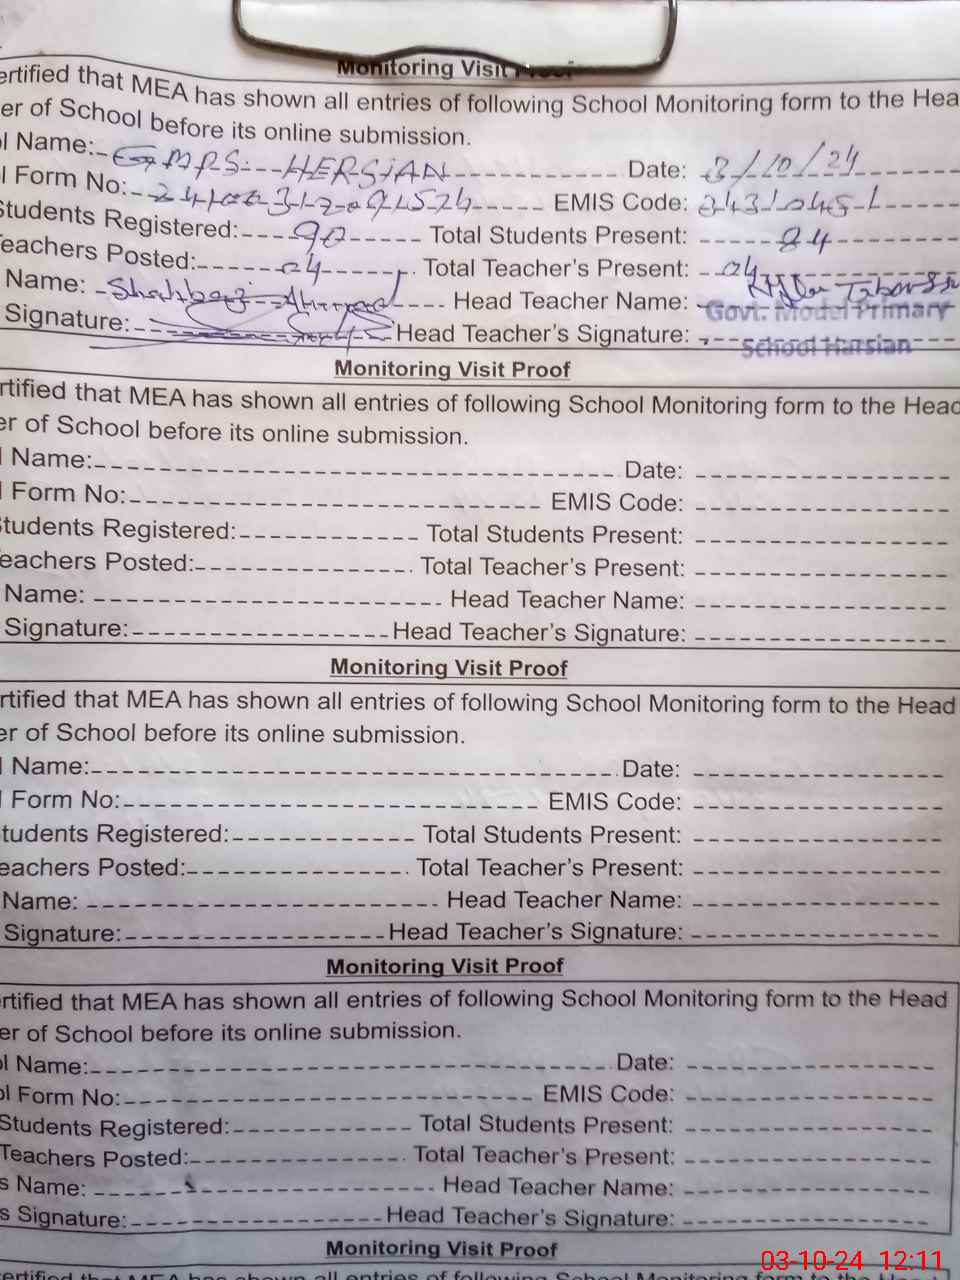 Monitoring Visit Proof
ertified that MEA has shown all entries of following School Monitoring form to the Hea
er of School before its online submission.
l Name: GMPS HERSIAN Date: 3/10/24
l Form No: EMIS Code:
Students Registered: 90 Total Students Present: 84
eachers Posted: 04 Total Teacher's Present: 04
Name: Shahbaz Ahmad Head Teacher Name:
Govt. Model Primary
Signature: Head Teacher's Signature:
School Harsian
Monitoring Visit Proof
rtified that MEA has shown all entries of following School Monitoring form to the Head
er of School before its online submission.
l Name: Date:
l Form No: EMIS Code:
Students Registered: Total Students Present:
eachers Posted: Total Teacher's Present:
Name: Head Teacher Name:
Signature: Head Teacher's Signature:
Monitoring Visit Proof
rtified that MEA has shown all entries of following School Monitoring form to the Head
er of School before its online submission.
l Name: Date:
l Form No: EMIS Code:
tudents Registered: Total Students Present:
eachers Posted: Total Teacher's Present:
Name: Head Teacher Name:
Signature: Head Teacher's Signature:
Monitoring Visit Proof
rtified that MEA has shown all entries of following School Monitoring form to the Head
er of School before its online submission.
ol Name: Date:
ol Form No: EMIS Code:
Students Registered: Total Students Present:
Teachers Posted: Total Teacher's Present:
s Name: Head Teacher Name:
s Signature: Head Teacher's Signature:
Monitoring Visit Proof
03-10-24 12:11
ertified that MEA has shown all entries of following School Monitoring form to the